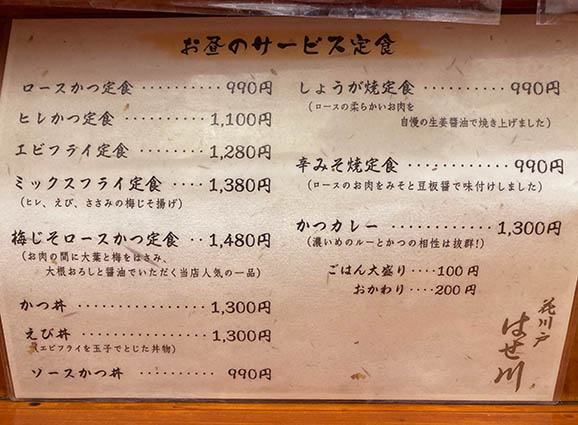 お昼のサービス定食
ロースかつ定食 ・・・・・・・・・ 990円
ヒレかつ定食 ・・・・・・・・・ 1,100円
エビフライ定食 ・・・・・・・ 1,280円
ミックスフライ定食 ・・・・ 1,380円
(ヒレ、えび、ささみの梅じそ揚げ)
梅じそロースかつ定食 ・・ 1,480円
(お肉の間に大葉と梅をはさみ、
大根おろしと醤油でいただく当店人気の一品)
かつ丼 ・・・・・・・・・・・ 1,300円
えび丼 ・・・・・・・・・・・ 1,300円
(エビフライを玉子でとじた丼物)
ソースかつ丼 ・・・・・・・・・ 990円
しょうが焼定食 ・・・・・・・・・ 990円
(ロースの柔らかいお肉を
自慢の生姜醤油で焼き上げました)
辛みそ焼定食 ・・・・・・・・・・ 990円
(ロースのお肉をみそと豆板醤で味付けしました)
かつカレー ・・・・・・・・・・・ 1,300円
(濃いめのルーとかつの相性は抜群!)
ごはん大盛り ・・・・ 100円
おかわり ・・・・ 200円
花川戸
はせ川